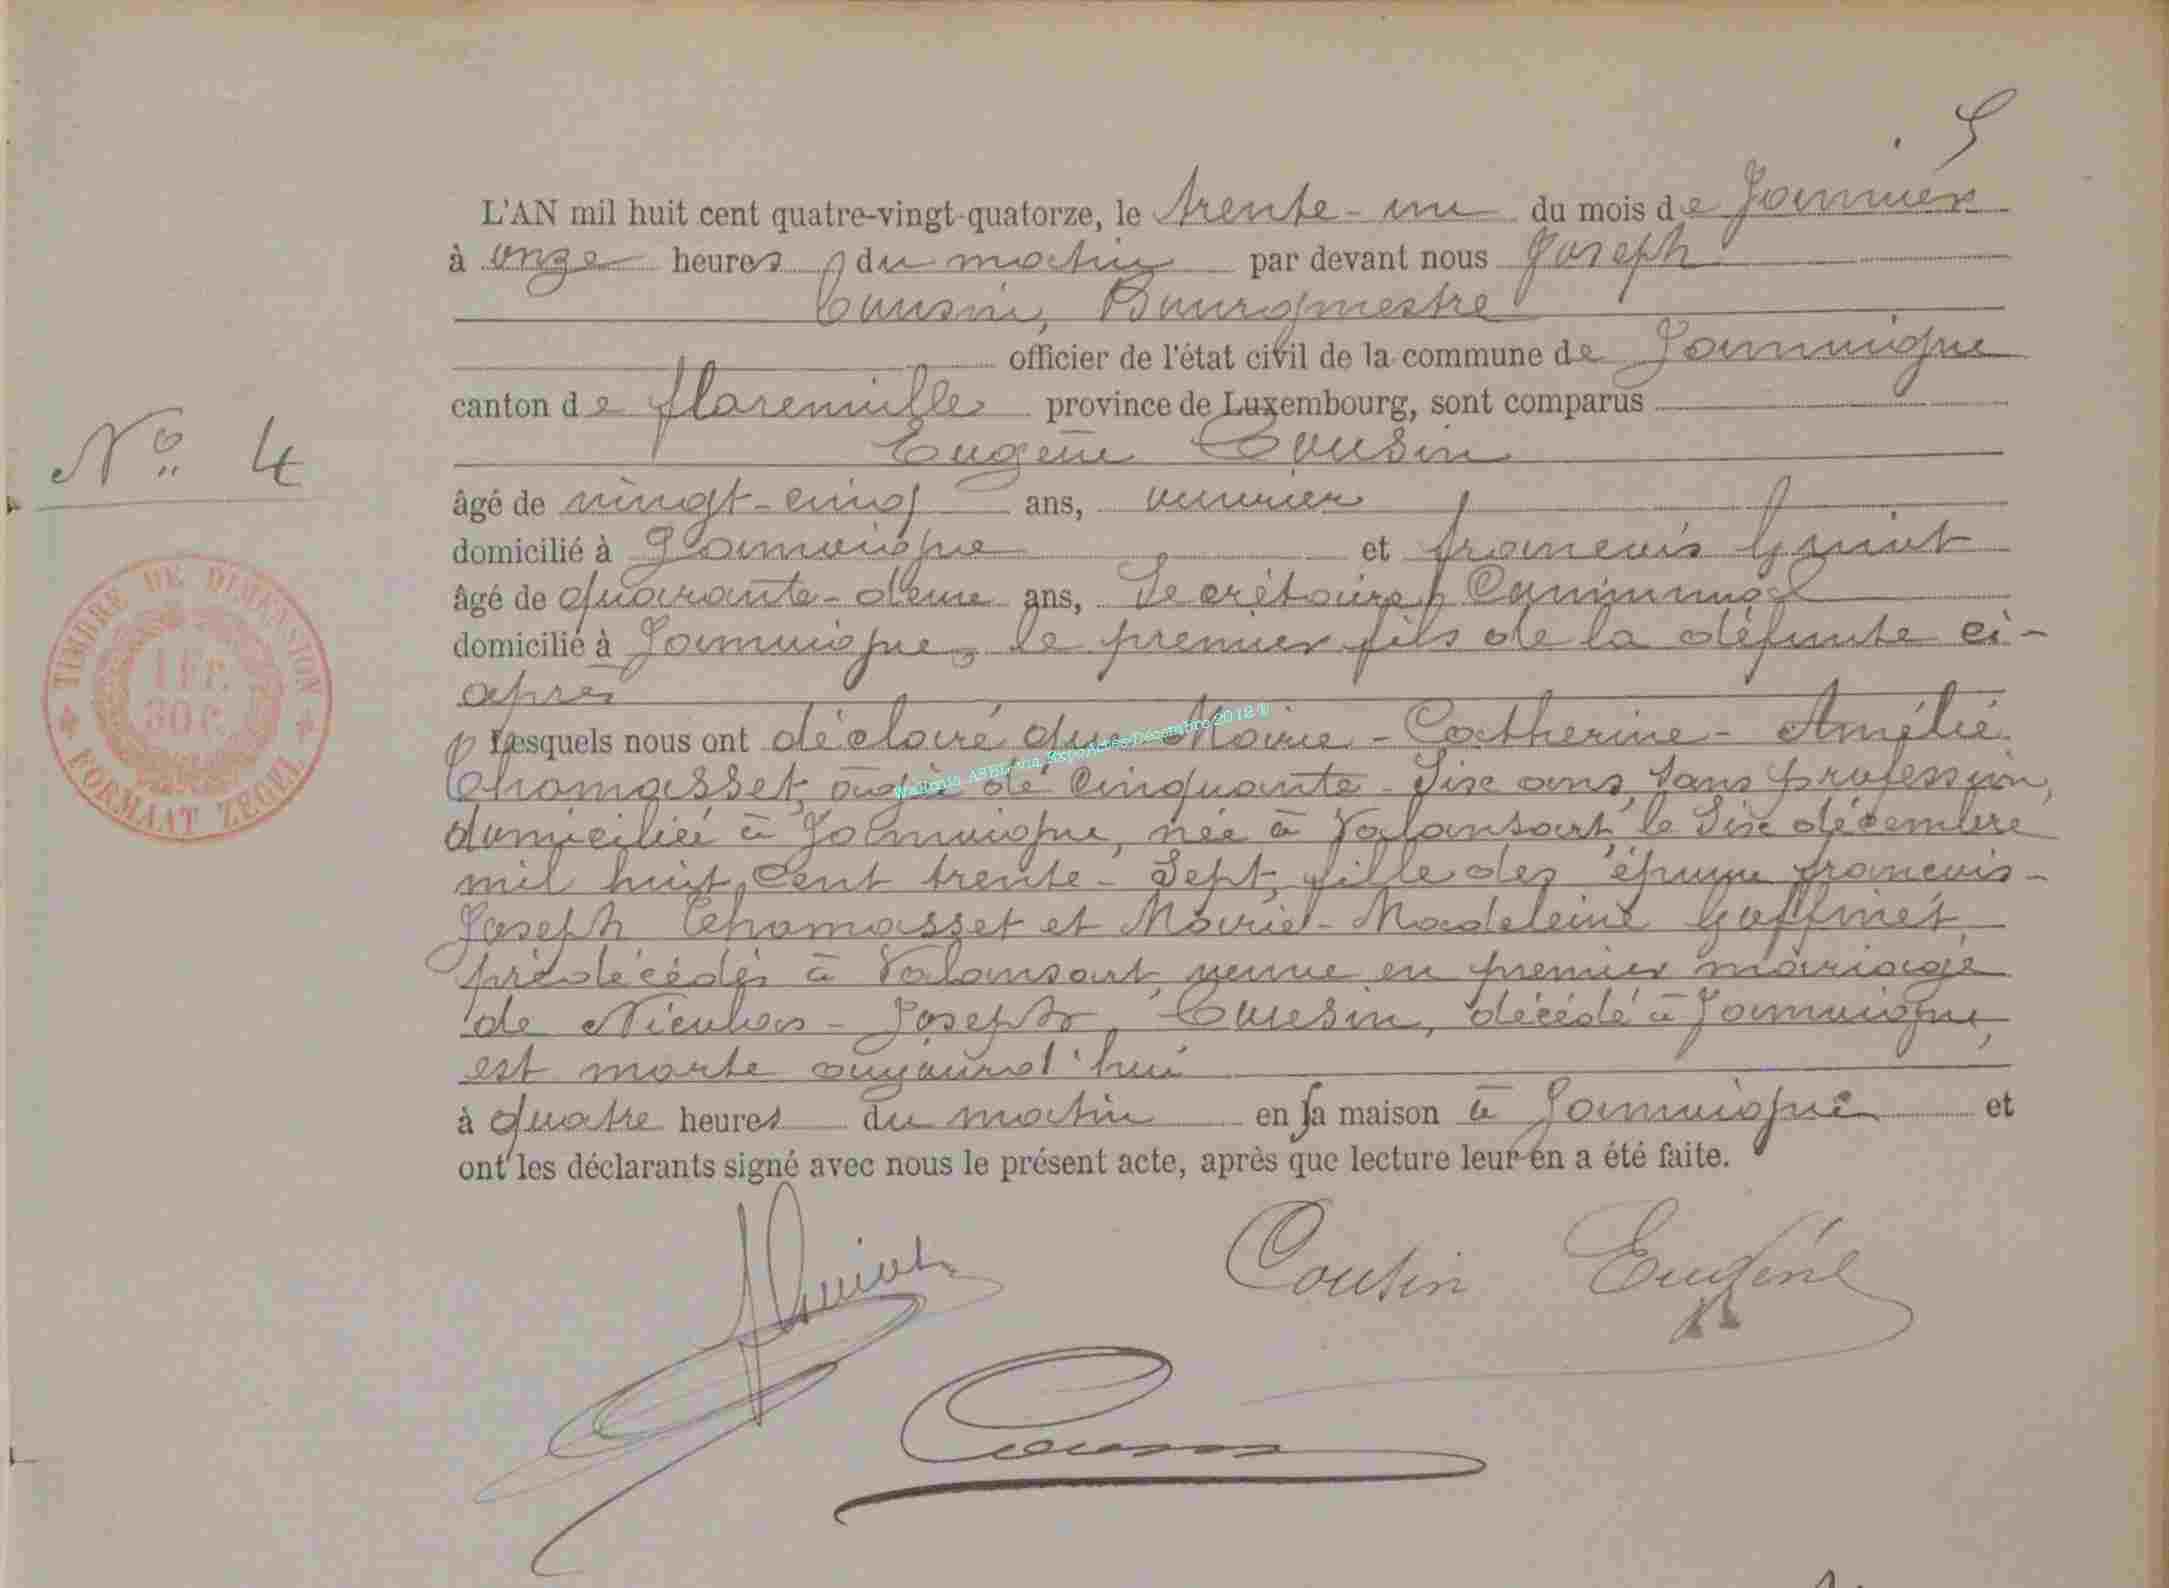 5
L'AN mil huit cent quatre-vingt-quatorze, le trente-un du mois de Janvier
à onze heures du matin par devant nous Joseph
Cousin, Bourgmestre
officier de l'état civil de la commune de Jamoigne
canton de florenville province de Luxembourg, sont comparus
N° 4
Eugène Cousin
âgé de vingt-cinq ans, ouvrier
domicilié à Jamoigne et françois Guiot
âgé de quarante-deux ans, Secrétaire Communal
domicilié à Jamoigne, le premier fils de la défunte ci-
après
TIMBRE DE DIMENSION
1 Fr.
30 C.
FORMAAT ZEGEL
Lesquels nous ont déclaré que Marie-Catherine-Amélie
Wallonia ASBL via ExpoActes Décembre 2018 ©
Thomasset, âgée de cinquante-Six ans, Sans profession,
domiciliée à Jamoigne, née à Valansart, le Six décembre
mil huit cent trente-Sept, fille des époux françois-
Joseph Thomasset et Marie-Madeleine Goffinet,
prédécédés à Valansart, veuve en premier mariage
de Nicolas-Joseph Cousin, décédé à Jamoigne,
est morte aujourd'hui
à quatre heures du matin en sa maison à Jamoigne et
ont les déclarants signé avec nous le présent acte, après que lecture leur en a été faite.
Guiot Cousin Eugène
Cousin